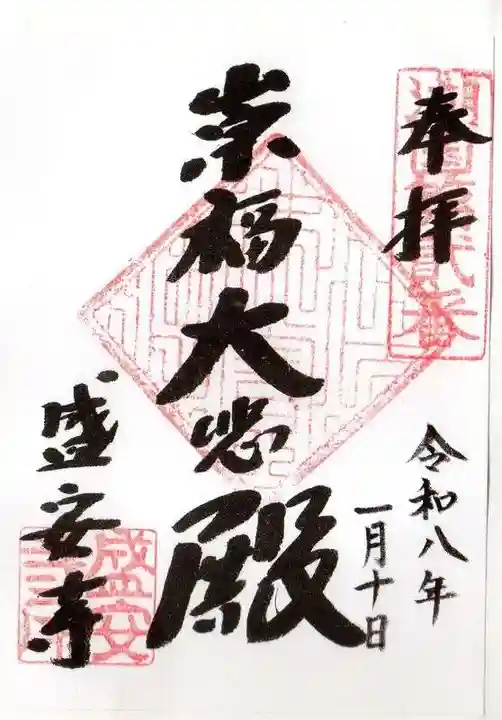 奉拝
崇福大悲殿
盛安寺
令和八年
一月十日